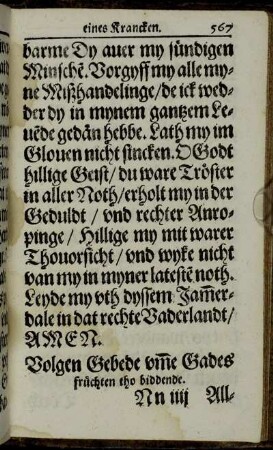 eines Krancken. 567
barme Dy auer my sündigen
Minschē. Vorgyff my alle my-
ne Mißhandelinge / de ick wed-
der dy in mynem gantzem Le-
uēde gedān hebbe. Lath my im
Glouen nicht sincken. O Godt
hillige Geist / du ware Tröster
in aller Noth / erholt my in der
Geduldt / vnd rechter Anro-
pinge / Hillige my mit warer
Thouorsicht / vnd wyke nicht
van my in myner latestē noth.
Leyde my vth dyssem Jam̄er-
dale in dat rechte Vaderlandt /
AMEN.
Volgen Gebede vm̄e Gades
früchten tho biddende.
Nn iiij All-